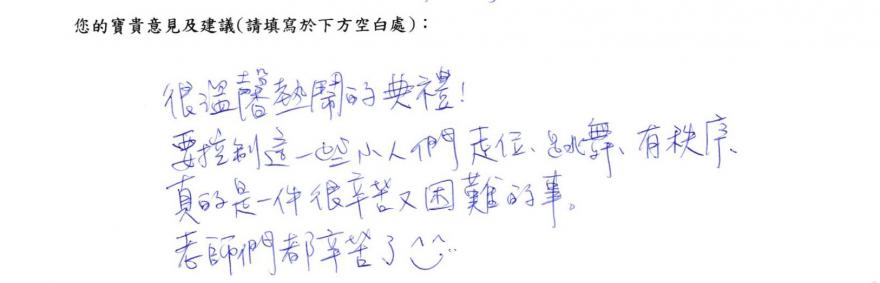 您的寶貴意見及建議(請填寫於下方空白處)：
很溫馨熱鬧的典禮!
要控制這一些小人們走位、跳舞、有秩序、
真的是一件很辛苦又困難的事。
老師們都辛苦了^^